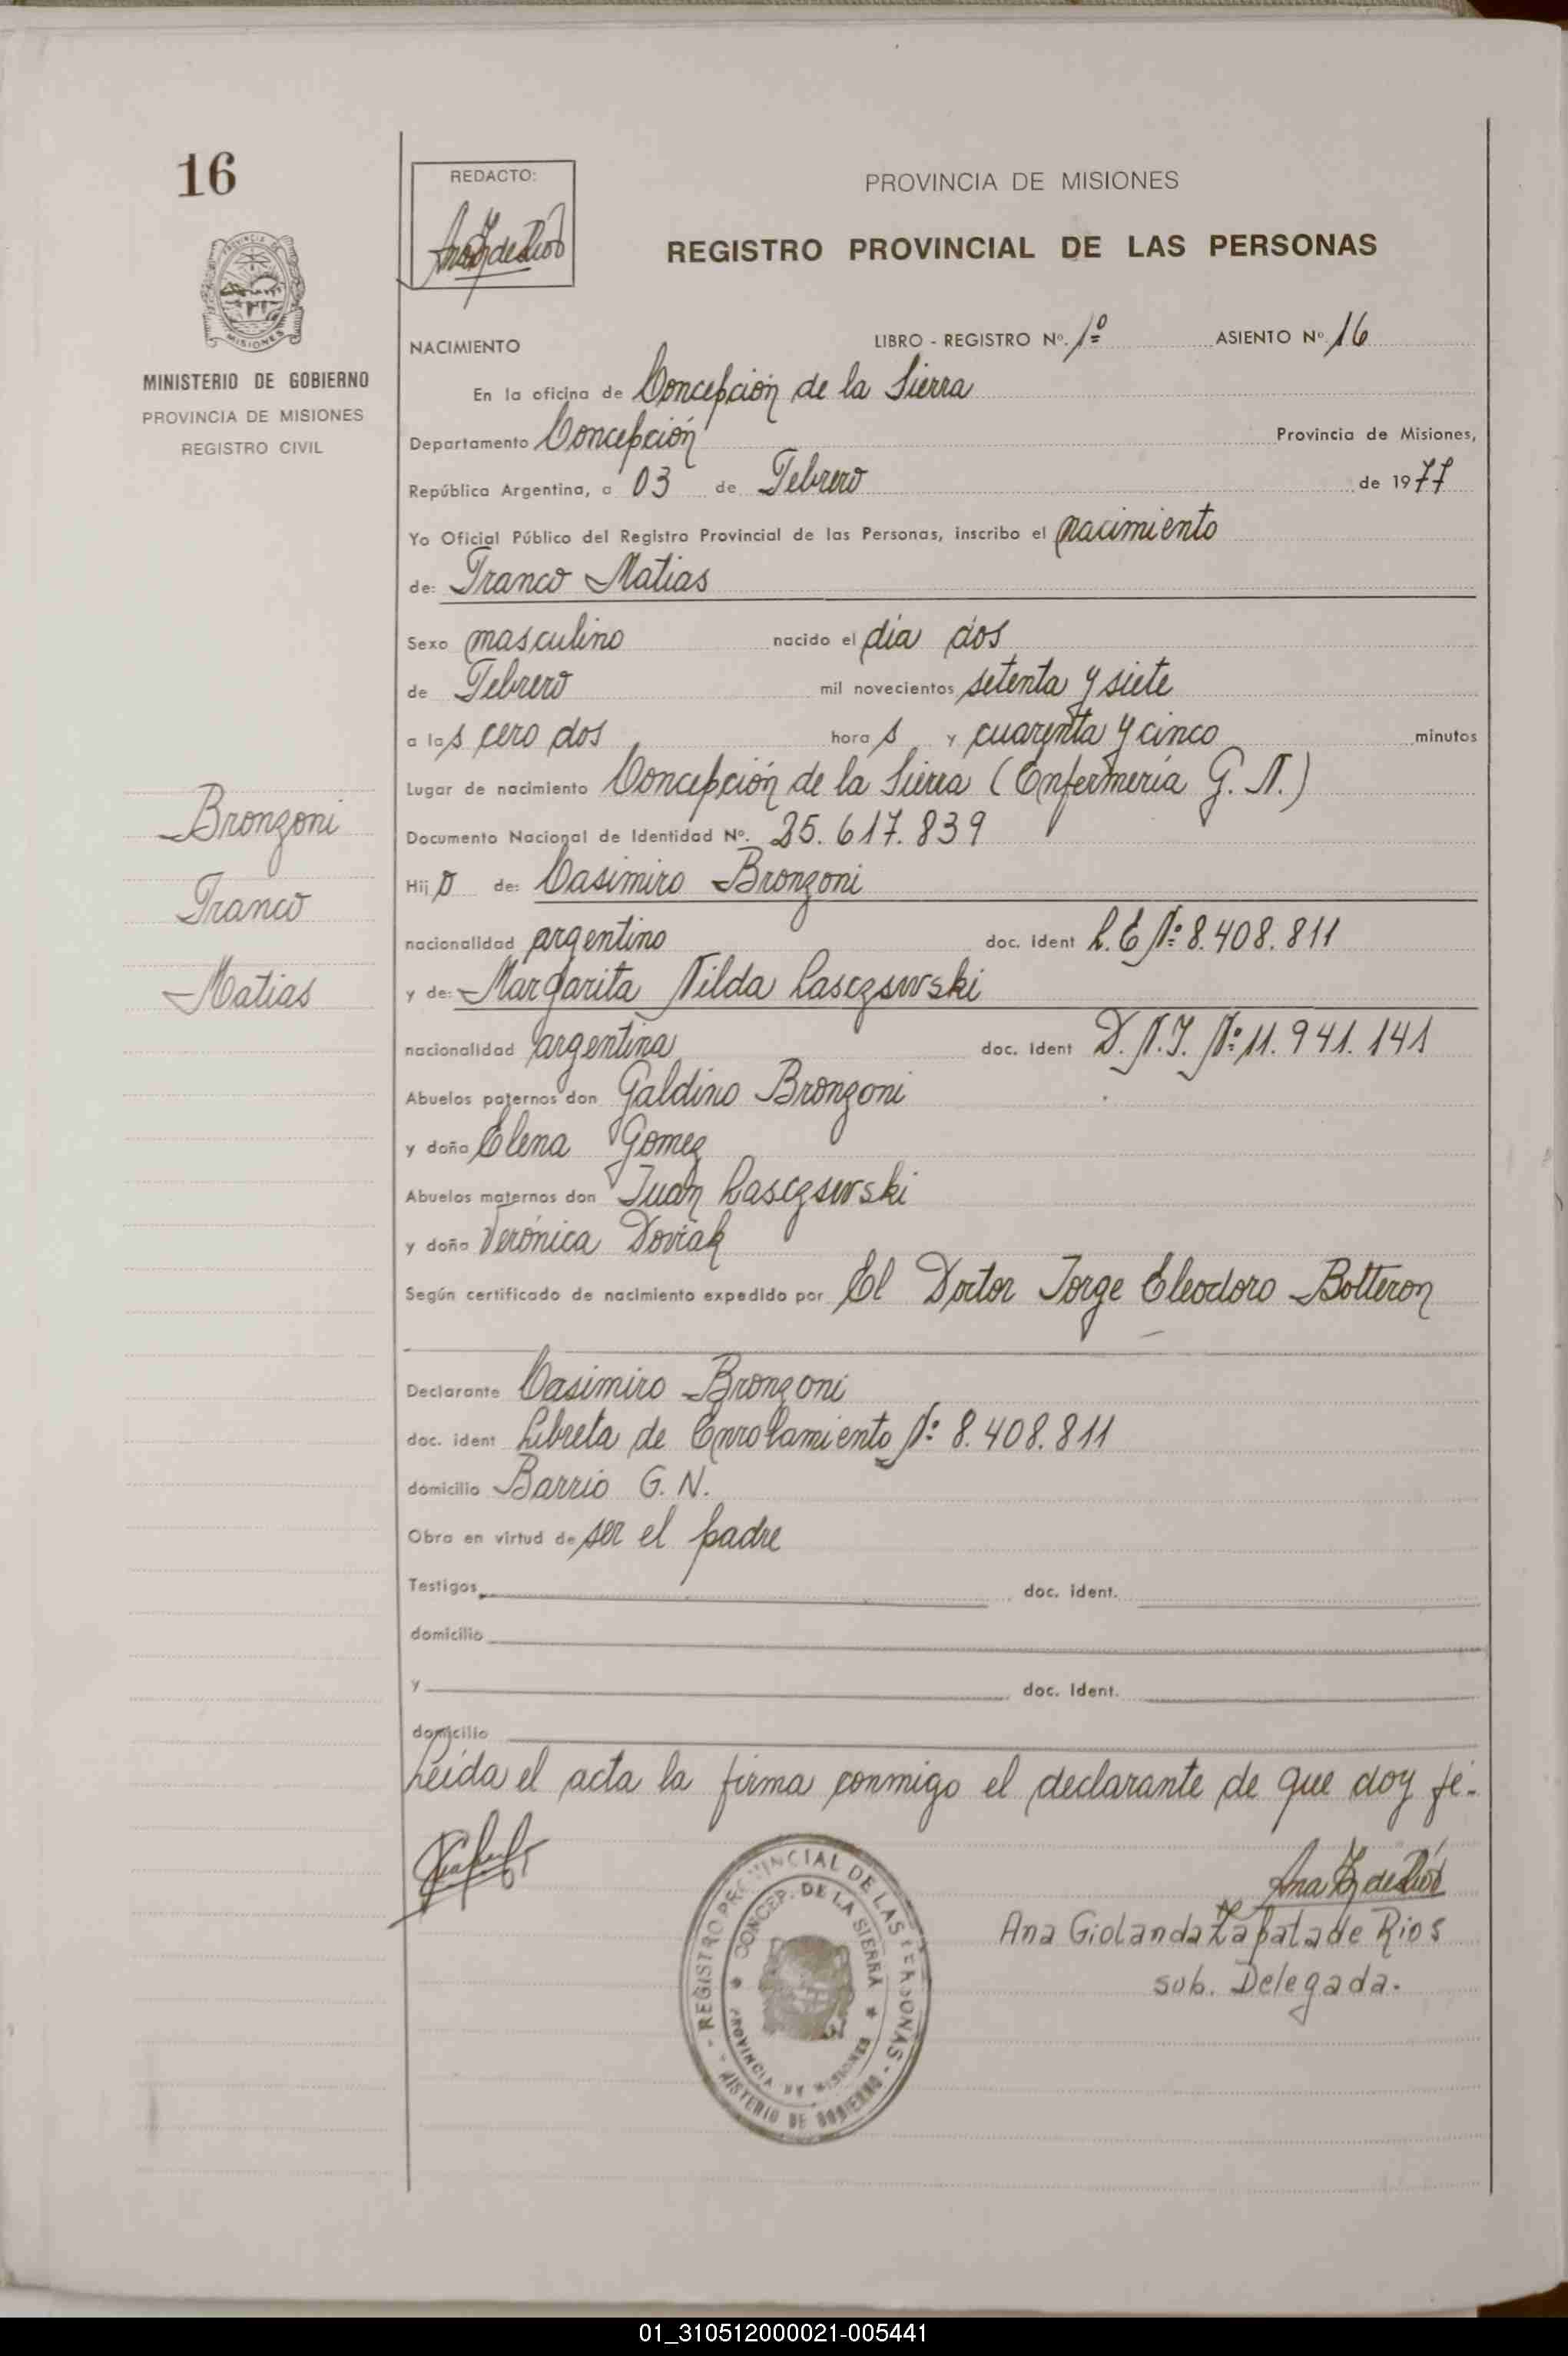 16
PROVINCIA DE
MISIONES
MINISTERIO DE GOBIERNO
PROVINCIA DE MISIONES
REGISTRO CIVIL
REDACTO:
PROVINCIA DE MISIONES
REGISTRO PROVINCIAL DE LAS PERSONAS
NACIMIENTO LIBRO - REGISTRO Nº. 1º ASIENTO Nº 16
En la oficina de Concepción de la Sierra
Departamento Concepción Provincia de Misiones,
República Argentina, a 03 de Febrero de 1977
Yo Oficial Público del Registro Provincial de las Personas, inscribo el nacimiento
de: Franco Matias
Sexo masculino nacido el día dos
de Febrero mil novecientos setenta y siete
a las cero dos horas y cuarenta y cinco minutos
Lugar de nacimiento Concepción de la Sierra (Enfermería G. N.)
Documento Nacional de Identidad Nº. 25.617.839
Hijo de: Casimiro Bronzoni
nacionalidad argentino doc. Ident L.E Nº 8.408.811
y de: Margarita Nilda Lasczswski
nacionalidad argentina doc. Ident D.N.I. Nº 11.941.141
Abuelos paternos don Galdino Bronzoni
y doña Elena Gomez
Abuelos maternos don Juan Lasczswski
y doña Verónica Doviak
Según certificado de nacimiento expedido por El Doctor Jorge Eleodoro Botteron
Declarante Casimiro Bronzoni
doc. ident Libreta de Enrolamiento Nº 8.408.811
domicilio Barrio G. N.
Obra en virtud de ser el padre
Testigos doc. ident.
domicilio
y doc. Ident.
domicilio
Leída el acta la firma conmigo el declarante de que doy fé.
Bronzoni
Franco
Matias
REGISTRO PROVINCIAL DE LAS PERSONAS
CONCEP. DE LA SIERRA
PROVINCIA DE MISIONES
MISTERIO DE GOBIERNO
Ana Z de Ríos
Ana Giolanda Zapata de Rios
sub. Delegada.
01_310512000021-005441